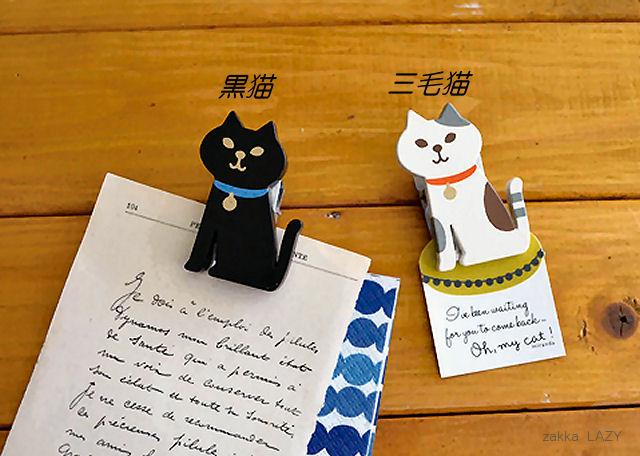 黒猫
三毛猫
104
PE
NTE
Je dois à l'emploi de pilules
Dynamos mon brillant état
de Santé qui a permis à
ma voix de conserver tout
son éclat et toute sa sonorité,
je ne cesse de recommander
ces précieuses pilules
mes amis
I've been waiting
for you to come back...
Oh, my cat!
zakka LAZY